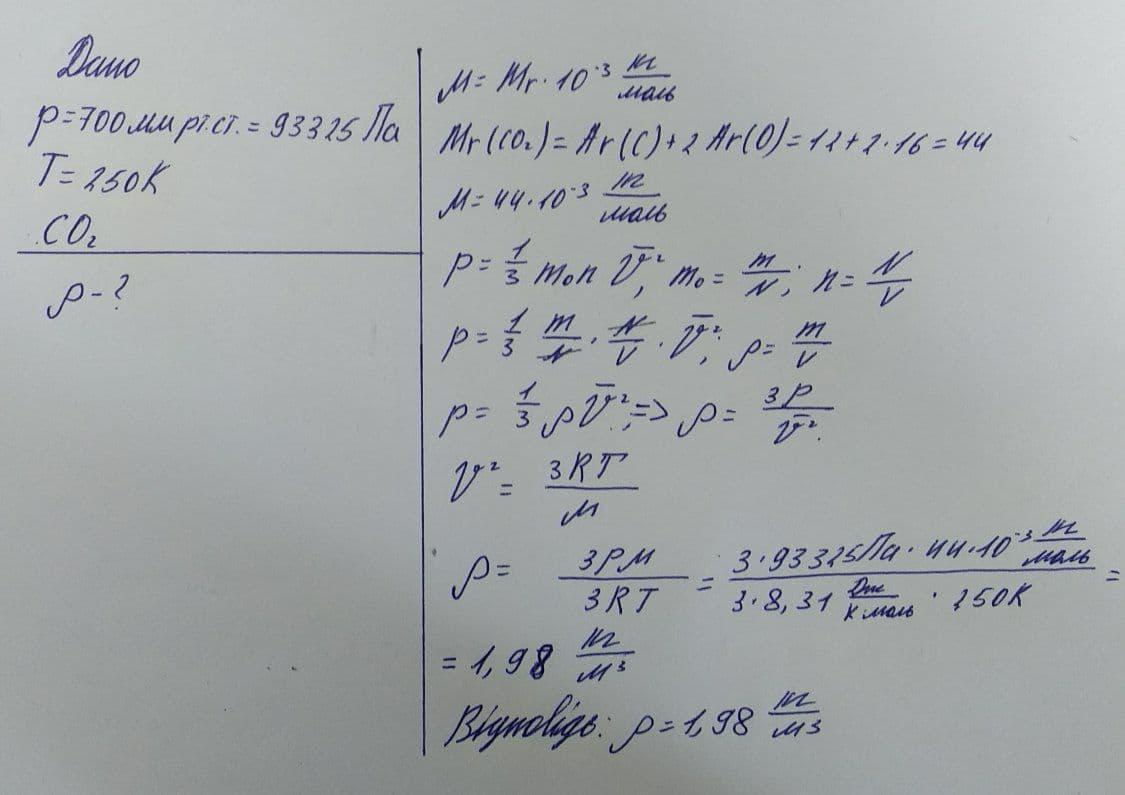 Дано
p=700мм рт.ст.=93325 Па
T=250K
CO₂
ρ-?
M=Mr·10⁻³ кг/моль
Mr(CO₂)=Ar(C)+2Ar(O)=12+2·16=44
M=44·10⁻³ кг/моль
p=1/3 m₀n V̄², m₀=m/N; n=N/V
p=1/3 m/N·N/V·V̄²; ρ=m/V
p=1/3 ρV̄²; => ρ=3p/V̄²
V²=3RT/M
ρ=3PM/3RT=3·93325Па·44·10⁻³ кг/моль/3·8,31 Дж/К моль·250К=
=1,98 кг/м³
Відповідь: ρ=1,98 кг/м3